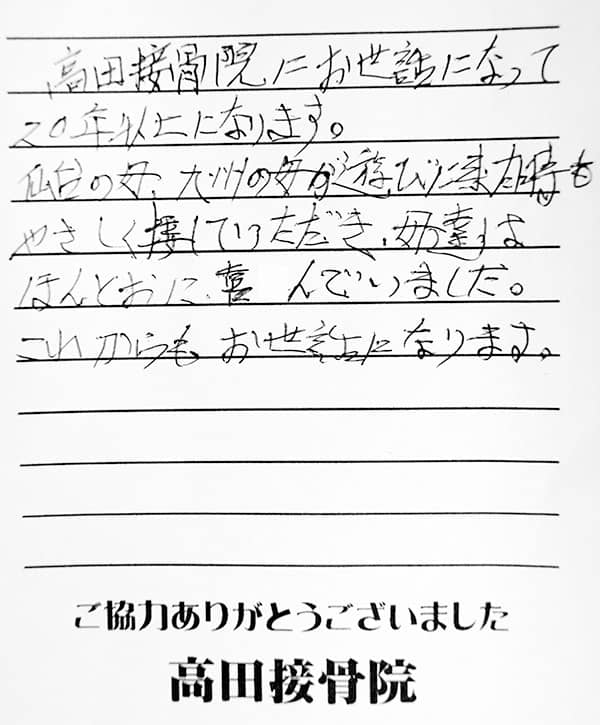 高田接骨院にお世話になって
20年以上になります。
仙台の母、九州の母が遊びに来た時も
やさしく接していただき、母達は
ほんとおに喜んでいました。
これからもお世話になります。
ご協力ありがとうございました
高田接骨院